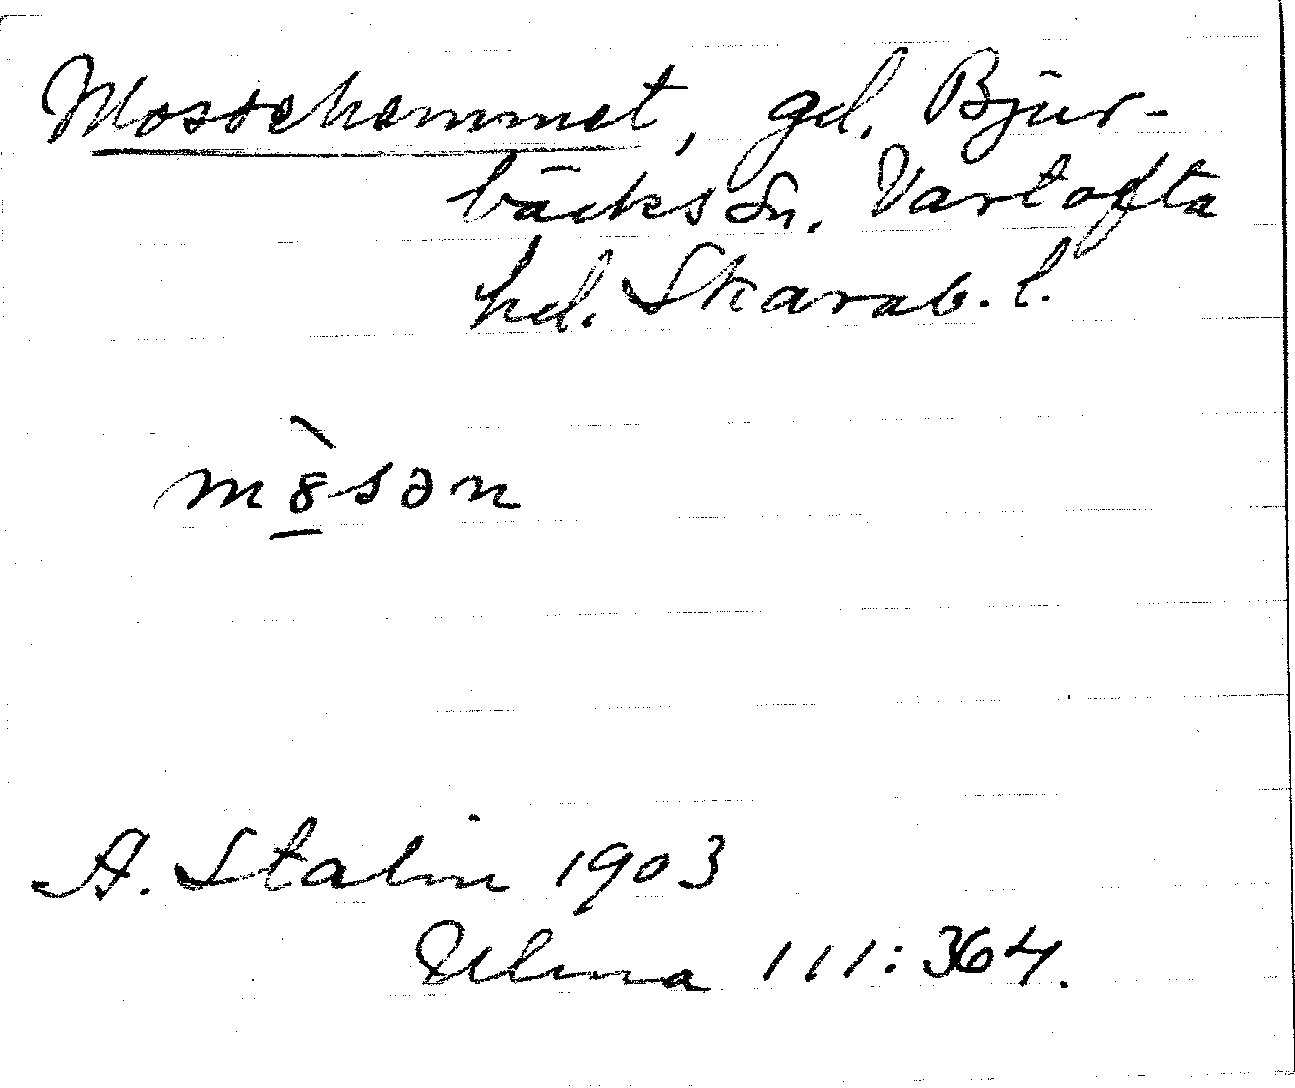 Mossehemmet, gd. Bjur-
bäcks sn. Vartofta
hd. Skarab. l.
mòsən
A. Stalin 1903
Ulma 111:364.